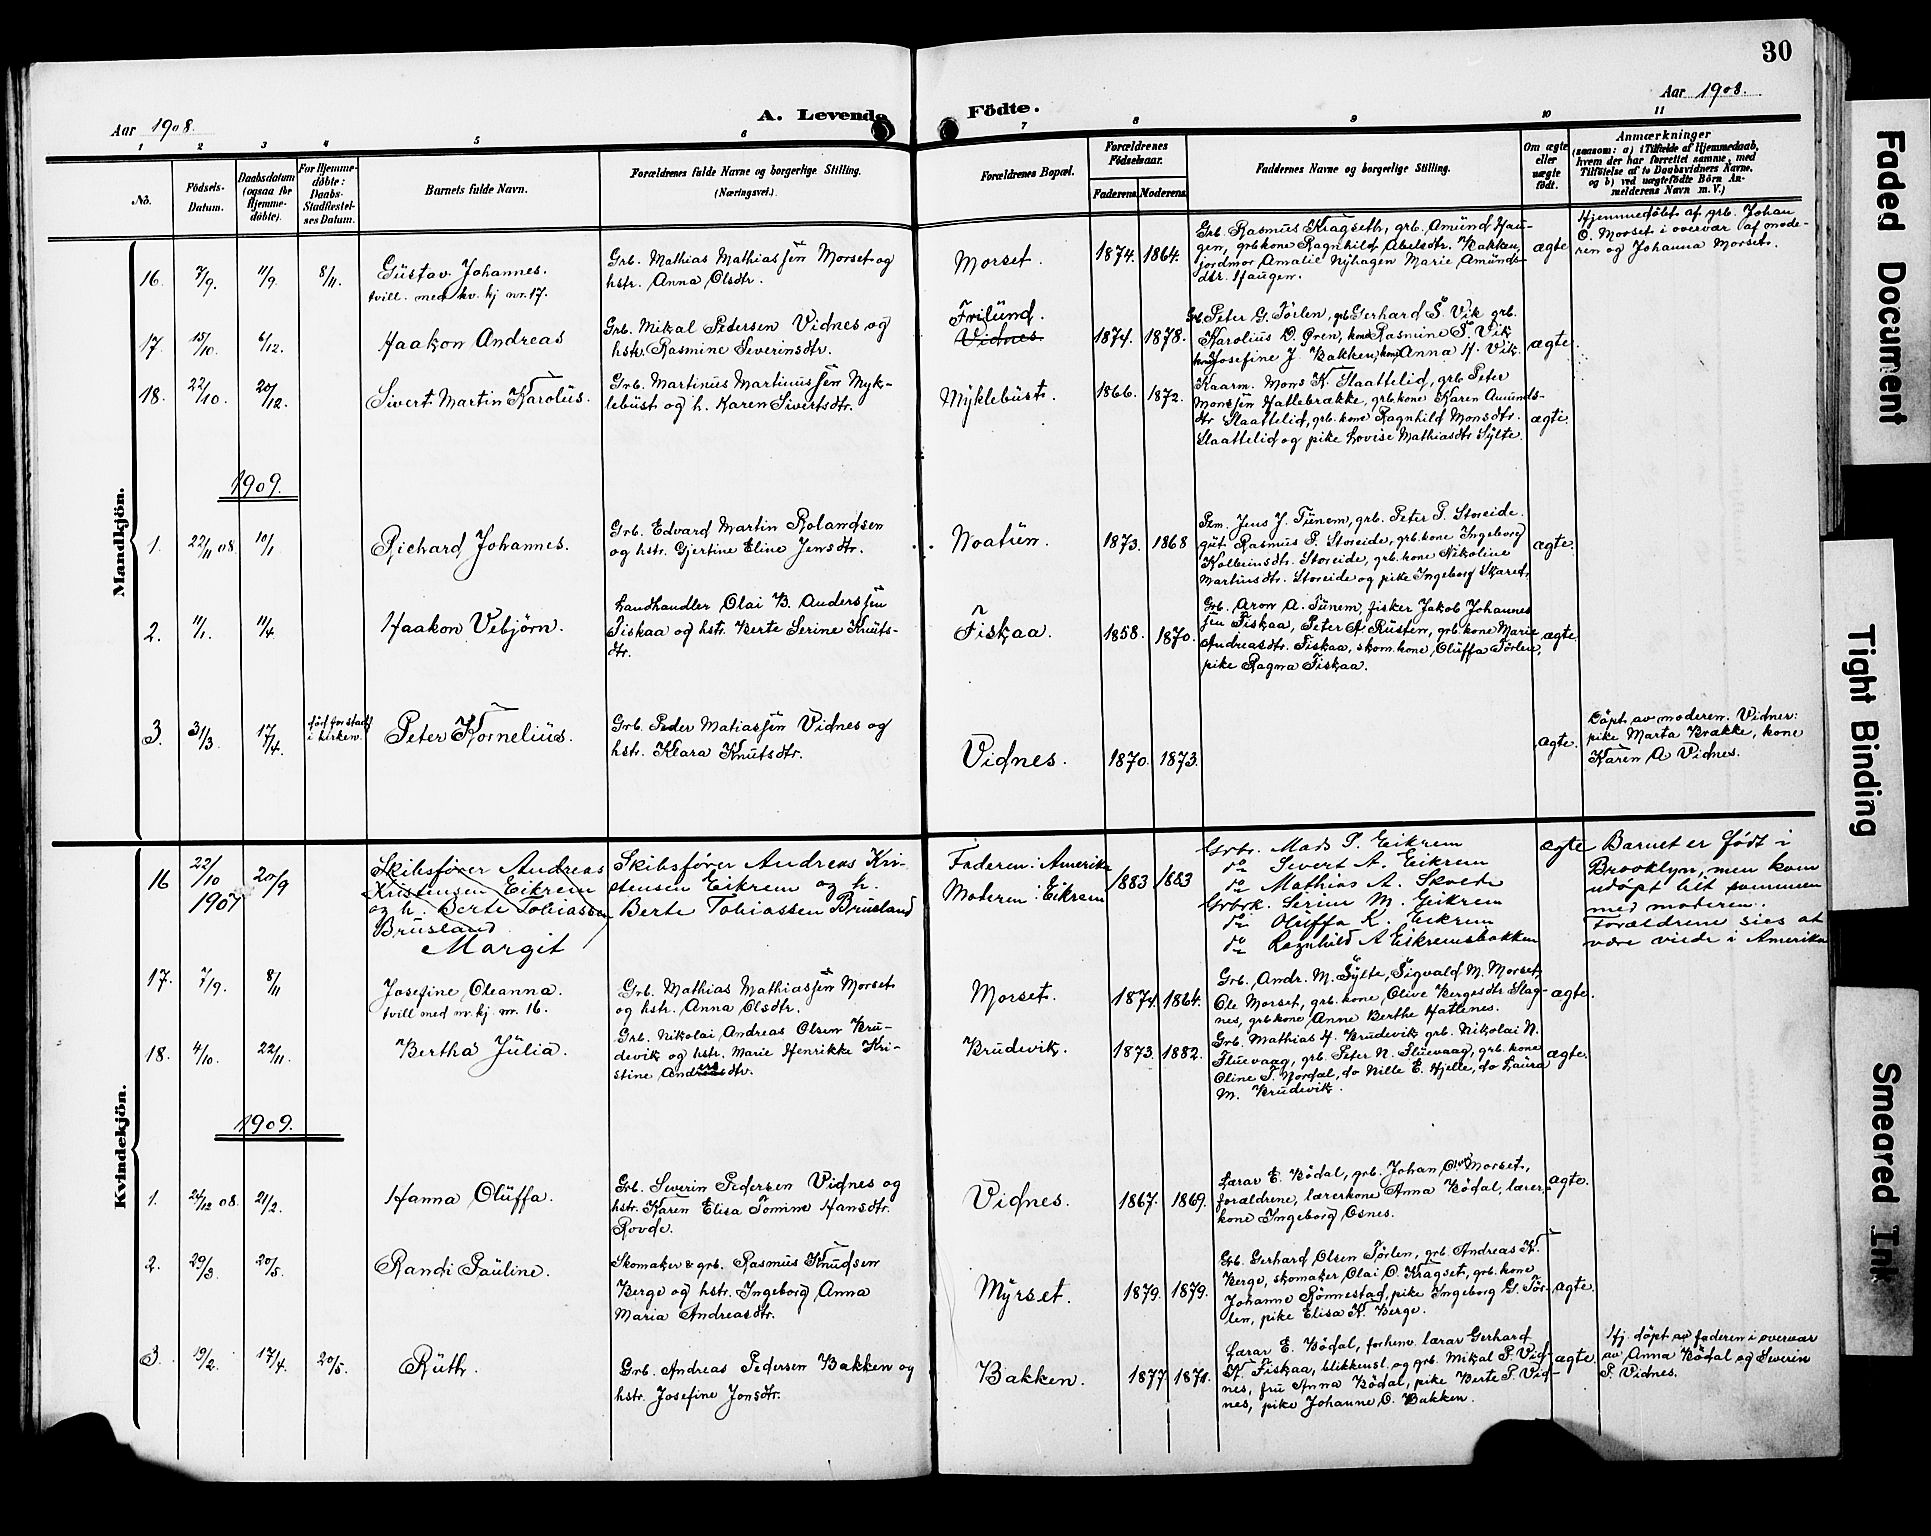 30
Aar 1908.
A. Levende Födte.
Aar 1908.
1 2 3 4 5 6 7 8 9 10 11
No.
Födsels-Datum.
Daabsdatum (ogsaa for Hjemme-døbte).
For Hjemme-døbte: Daabs-Stadfæstel-ses Datum.
Barnets fulde Navn.
Forældrenes fulde Navne og borgerlige Stilling. (Næringsvei.)
Forældrenes Bopæl.
Forældrenes Födselsaar.
Faderens Moderens
Faddernes Navne og borgerlige Stilling.
Om ægte eller uægte født.
Anmærkninger
(saasom: a) i Tilfælde af Hjemmedaab,
hvem der har forrettet samme, med
Tilføielse af to Daabsvidners Navne,
og b) ved uægtefødte Börn An-
melderens Navn m. V.)
Mandkjön.
16. 7/9. 11/9. 8/11. Gustav Johannes.
tvill. med kv. kj nr. 17.
Grb. Mathias Mathiassen Morset og
hstr. Anna Olsdtr.
Morset. 1874. 1864.
Grb. Rasmus Kragseth, grb. Amund Hau-
gen, grb kone Ragnhild Abelsdtr. Bakken,
jordmor Amalie Nyhagen Marie Amunds-
dtr. Haugen.
ægte
Hjemmedøbt af grb. Johan
O. Morset i overvær af mode-
ren og Johanna Morset.
17. 15/10. 6/12. Haakon Andreas
Grb. Mikal Pedersen Vidnes og
hstr. Rasmine Severinsdtr.
Frilund.
Vidnes.
1874. 1878.
Grb. Peter G. Tørlen, grb Gerhard S. Vik grb.
Karolius O. Øren, kone Rasmine S. Vik
kone Josefine J Bakken, kone Anna H. Vik.
ægte.
18. 22/10. 20/12. Sivert Martin Karolus.
Grb. Martinus Martinussen Myk-
lebust og h. Karen Sivertsdtr.
Myklebust. 1866. 1872.
Kaarm. Mons K. Slaattelid, grb Peter
Monssen Hallebrække, grb. kone Karen Amunds-
dtr Slaattelid, grb. kone Ragnhild Monsdtr.
Slaattelid og pike Lovise Mathiasdtr Sylte.
ægte.
1909.
1. 22/11 08. 10/1 Richard Johannes.
Grb. Edvard Martin Rolandsen
og hstr. Gjertine Eline Jensdtr.
Noatun. 1873. 1868
Pzm. Jens J. Tunem, grb. Peter P. Storeide.
gut Rasmus P. Storeide, grb. kone Ingeborg
Kolbeinsdtr. Storeide, grb. kone Nikoline
Martinsdtr. Storeide og pike Ingeborg Skaret,
ægte.
2. 11/1. 11/4. Haakon Vebjörn.
Landhandler Olai B. Anderssen
Fiskaa og hstr. Berte Serine Knuts-
dtr.
Fiskaa. 1858. 1870.
Grb. Aron A. Tunem, fisker Jakob Johannes
sen Fiskaa, Peter A. Rusten, grb. kone Marie
Andreasdtr. Fiskaa, skom. kone, Oluffa Tørlen,
pike Ragna Fiskaa.
ægte
3. 31/3. 17/4. død før stadf i kirken. Peter Kornelius.
Grb. Peder Matiassen Vidnes og
hstr. Klara Knutsdtr.
Vidnes. 1870. 1873.
ægte.
Döpt av moderen. Vidner:
pike Marta Brække, kone
Karen A Vidnes.
Kvindekjön.
16 22/10 1907 20/9
Skibsfører Andreas
Kristensen Eikrem
og h. Berte Tobiassen
Brusland
Margit
Skibsfører Andreas Kri-
stensen Eikrem og h.
Berte Tobiassen Brusland
Faderen: Amerika
Moderen: Eikrem
1883 1883
Grbr. Mads P. Eikrem
do Sivert A. Eikrem
do Mathias A. Skolde
Grbrk. Serine M. Eikrem
do Oluffa K. Eikrem
do Ragnhild A Eikremsbakken
ægte
Barnet er født i
Brooklyn, men kom
udøpt hit sammen
med moderen.
Forældrene sies at
være viede i Amerika
17. 7/9. 8/11 Josefine Oleanna.
tvill med m. kj. nr. 16.
Grb. Mathias Mathiassen Morset
og hstr. Anna Olsdtr.
Morset. 1874. 1864.
Grb. Andr. M. Sylte, Sigvald M. Morset,
Ole Morset, grb. kone, Olive Bergesdtr Slag-
nes, grb kone Anne Berthe Hattenes.
ægte.
18. 4/10. 22/11. Bertha Julia.
Grb. Nikolai Andreas Olsen Bru-
devik og hstr. Marie Henrikke Kri-
stine Andersdtr.
Brudevik. 1873. 1882.
Grb. Mathias H. Brudevik grb. Nikolai N.
Fluevaag, grb. Peter N. Fluevaag, grb. kone
Oline T. Nordal, do Nille E. Hjelle, do Laura
M. Brudevik.
ægte.
1909.
1. 24/12 08. 21/2. Hanna Oluffa.
Grb. Severin Pedersen Vidnes og
hstr. Karen Elisa Tomine Hansdtr.
Rovde.
Vidnes. 1867. 1869.
Lærar E. Bödal, grb. Johan Morset,
forældrene, lærerkone Anna Bödal, lærer-
kone Ingeborg Osnes.
ægte.
2. 29/3. 20/5. Randi Pauline.
Skomaker & grb. Rasmus Knudsen
Berge og hstr. Ingeborg Anna
Maria Andreasdtr.
Myrset. 1879. 1879.
Grb. Gerhard Olsen Tørlen, grb. Andreas K.
Berge, skomaker Olai O. Kragset, grb. kone
Johanne Rönnestad, pike Ingeborg G. Tør-
len, pike Elisa K. Berge.
ægte.
3. 19/2. 17/4. 20/5. Ruth.
Grb. Andreas Pedersen Bakken og
hstr. Josefine Jonsdtr.
Bakken. 1877. 1871.
Lærar E. Bödal, forhenv. lærar Gerhard
K. Fiskaa, blikkensl. og grb. Mikal P. Vid-
nes, fru Anna Bödal, pike Berte P. Vid-
nes, pike Johanne O. Bakken.
ægte.
Hj. döpt av faderen i overvær
av Anna Bödal og Severin
P. Vidnes.
Faded Document
Tight Binding
Smeared Ink